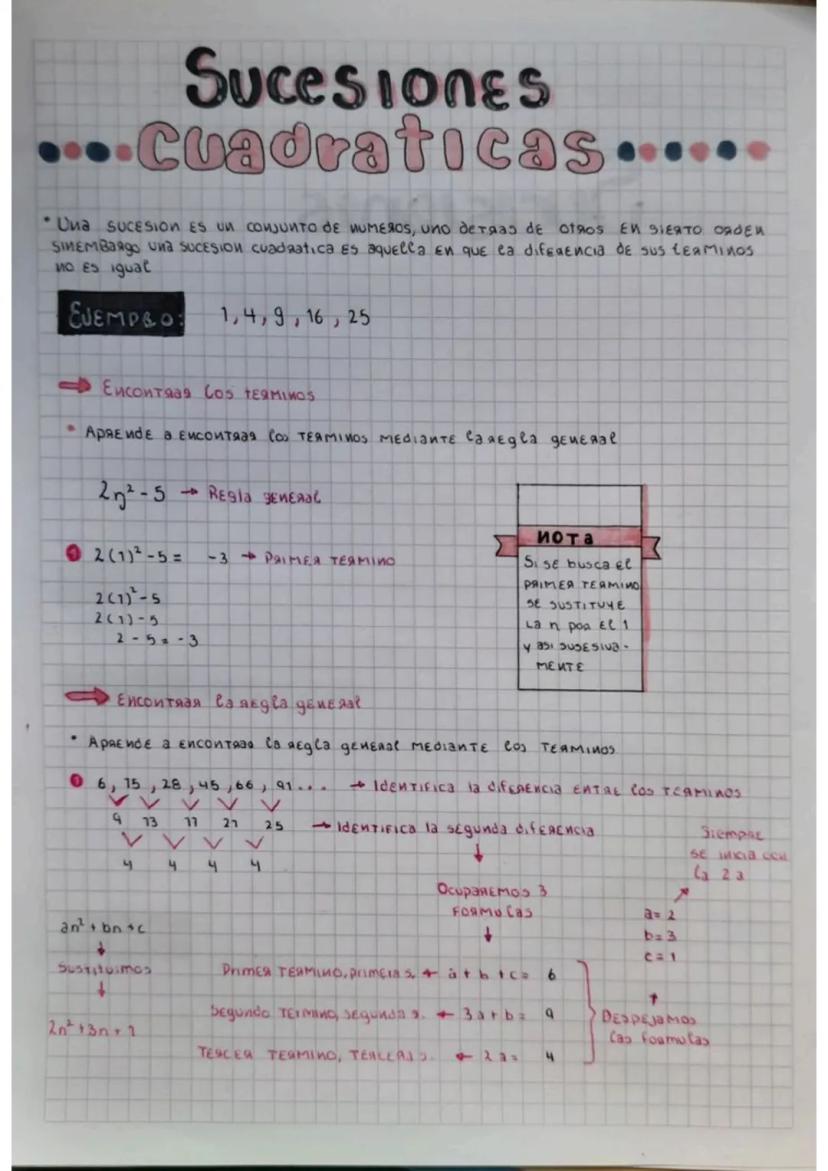 Sucesiones
Cuadraticas
• Una sucesion es un conjunto de numeros, uno detras de otros en sierto orden
sinembargo una sucesion cuadratica es aquella en que la diferencia de sus terminos
no es igual
Ejemplo: 1, 4, 9, 16, 25
⇒ Encontrar los terminos
• Aprende a encontrar los terminos mediante la regla general
2n² - 5 → Regla general
1 2(1)² - 5 = -3 → Primer termino
2(1)² - 5
2(1) - 5
2 - 5 = -3
Nota
Si se busca el
primer termino
se sustituye
la n por el 1
y asi susesiva-
mente
⇒ Encontrar la regla general
• Aprende a encontrar la regla general mediante los terminos
1 6, 15, 28, 45, 66, 91... → Identifica la diferencia entre los terminos
9 13 17 21 25 → Identifica la segunda diferencia
4 4 4 4
Siempre
se inicia con
la 2a
Ocuparemos 3
formulas
a = 2
b = 3
c = 1
an² + bn + c
Sustituimos
2n² + 3n + 1
Primer termino, primera s. ← a + b + c = 6
Segundo termino, segunda s. ← 3a + b = 9
Tercer termino, tercera s. ← 2a = 4
Despejamos
las formulas